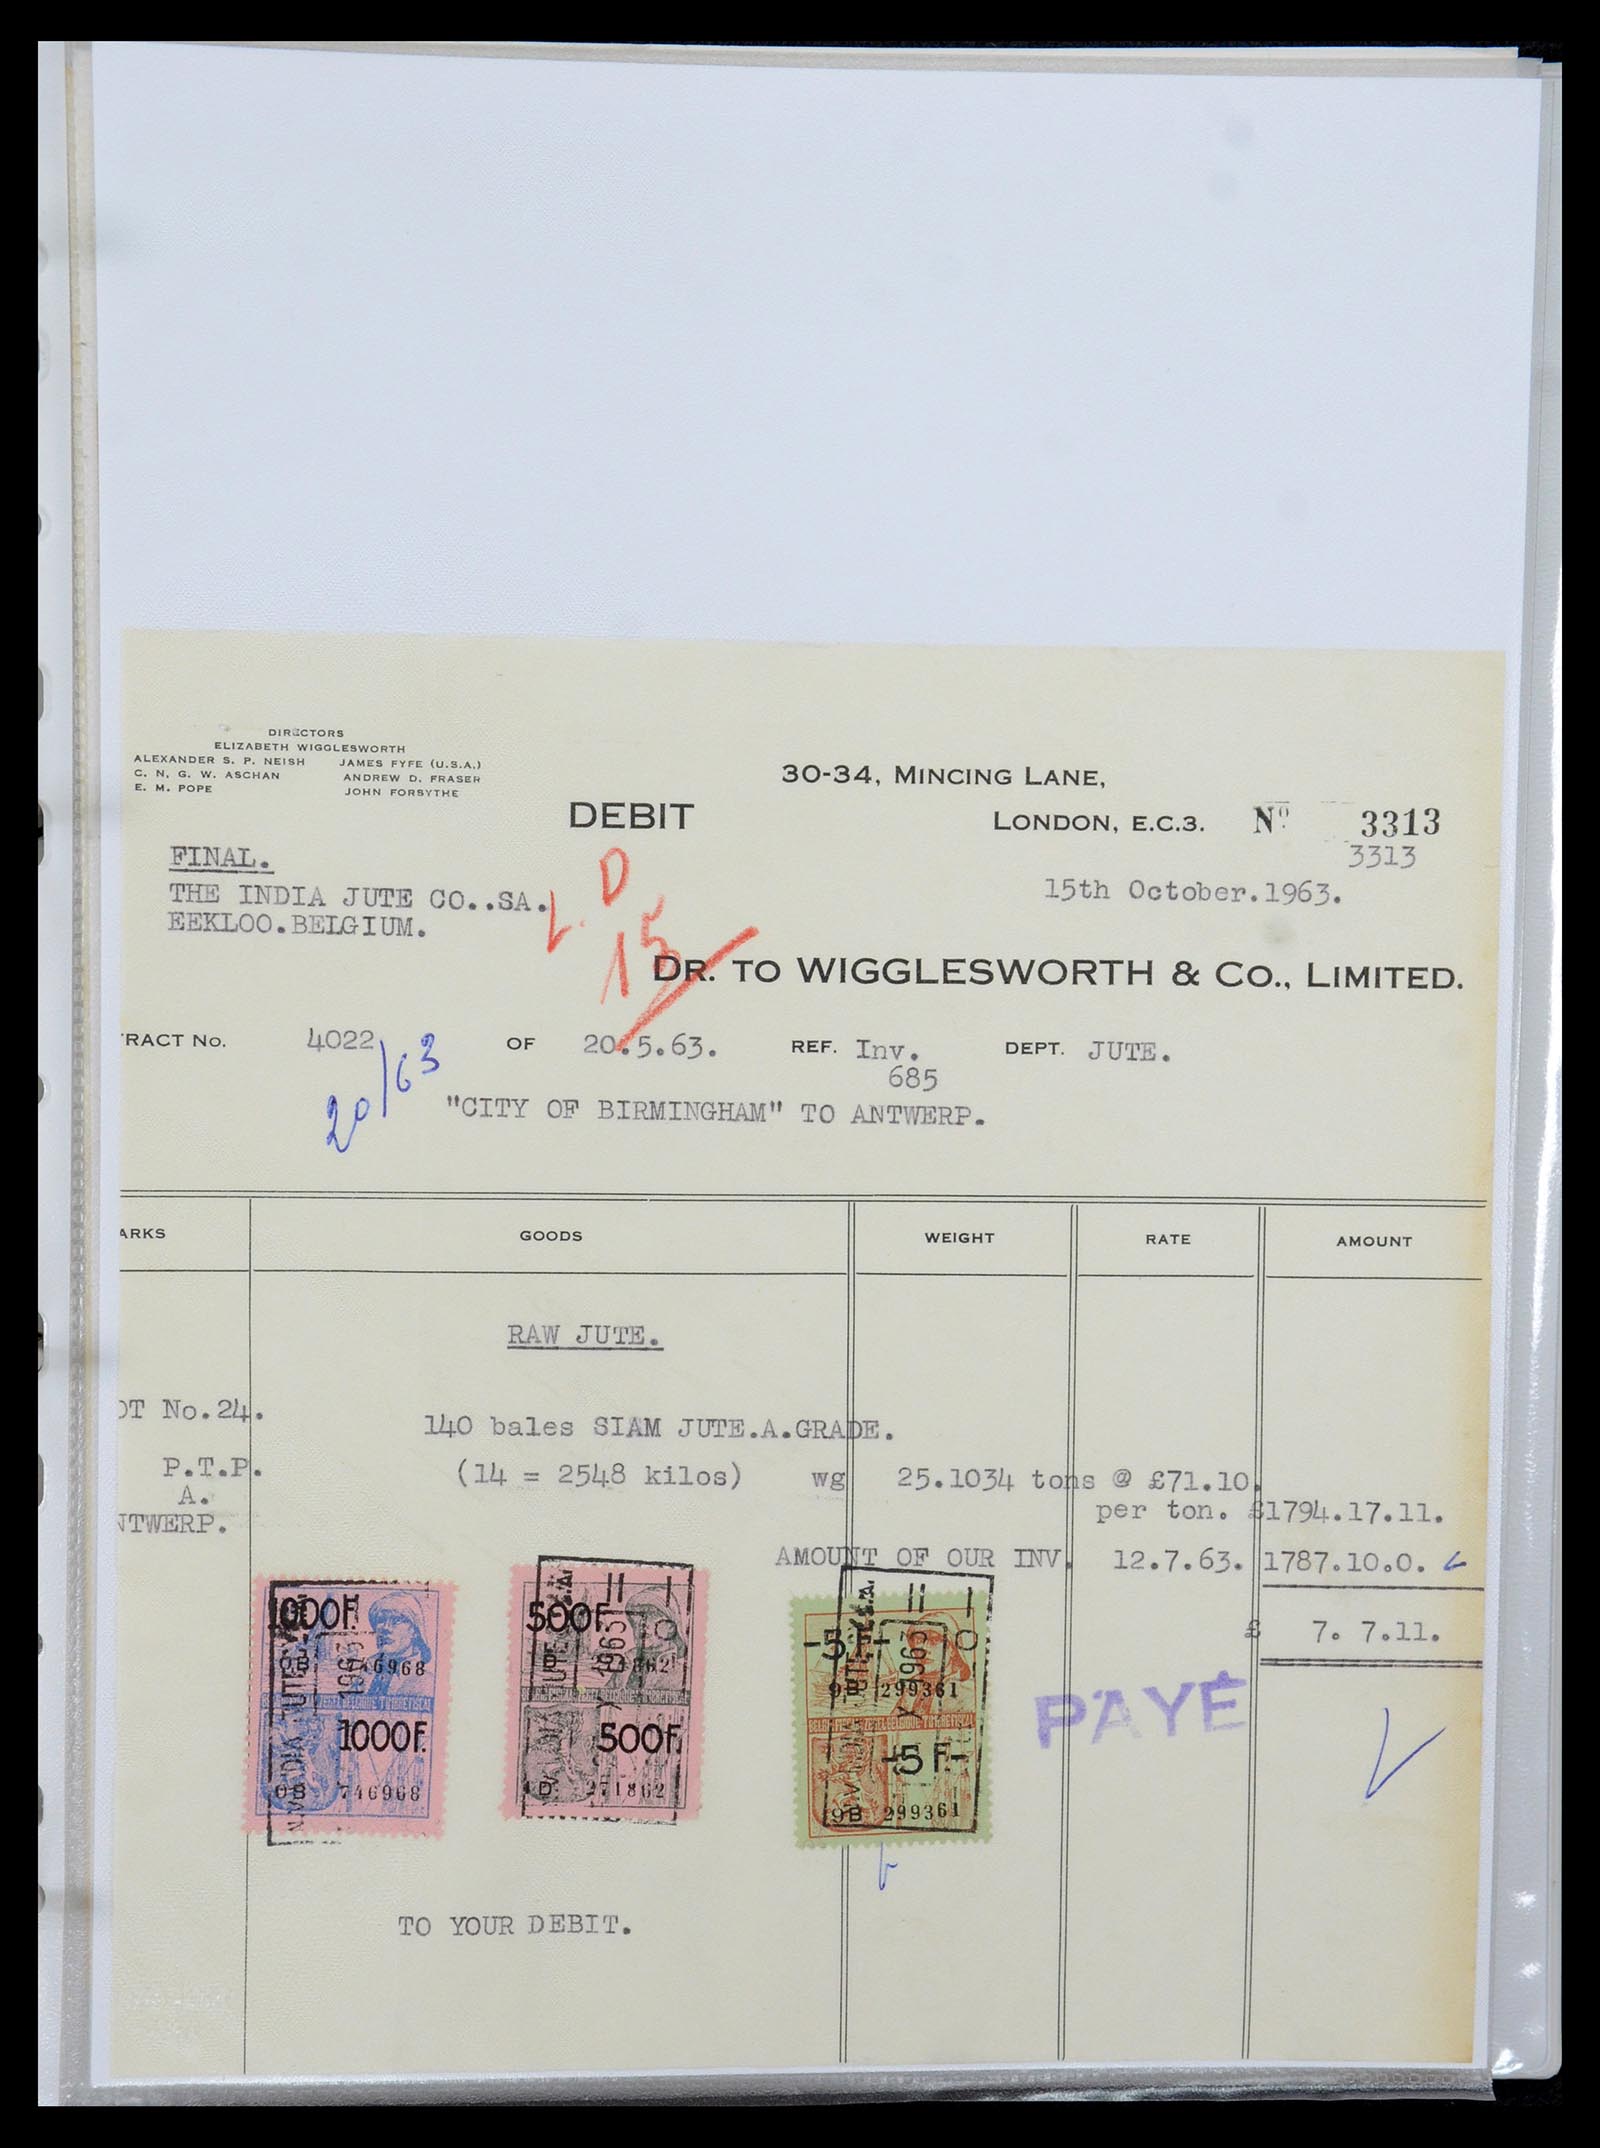 DIRECTORS
ELIZABETH WIGGLESWORTH
ALEXANDER S. P. NEISH JAMES FYFE (U.S.A.)
C. N. G. W. ASCHAN ANDREW D. FRASER
E. M. POPE JOHN FORSYTHE
30-34, MINCING LANE,
DEBIT
LONDON, E.C.3. Nº 3313
3313
FINAL.
THE INDIA JUTE CO..SA.
EEKLOO.BELGIUM.
15th October.1963.
D
15
DR. TO WIGGLESWORTH & CO., LIMITED.
TRACT NO. 4022 OF 20.5.63. REF. Inv. DEPT. JUTE.
685
20/63
"CITY OF BIRMINGHAM" TO ANTWERP.
ARKS GOODS WEIGHT RATE AMOUNT
RAW JUTE.
OT No.24. 140 bales SIAM JUTE.A.GRADE.
P.T.P. (14 = 2548 kilos) wg 25.1034 tons @ £71.10.
A. per ton. £1794.17.11.
NTWERP.
AMOUNT OF OUR INV. 12.7.63. 1787.10.0.
£ 7. 7.11.
1000F. 500F. -5 F-
746968 271862 9B 299361
1963 1963 1963
1000F. 500F. -5 F.-
0B 746968 D. 271862 9B 299361
PAYÉ
TO YOUR DEBIT.